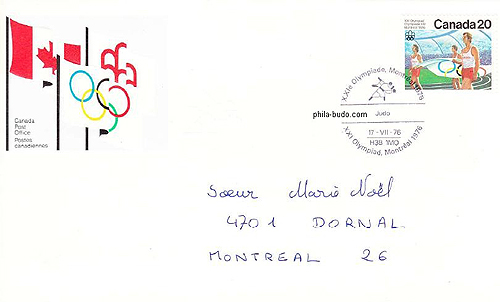 Canada
Post
Office
Postes
canadiennes
XXI Olympiad
Canada 20
XXIe Olympiade, Montréal 1976
phila-budo.com
Judo
17-VII-76
H3B 1M0
XXI Olympiad, Montréal 1976
Soeur Marie Noël
4701 DORNAL
MONTREAL 26